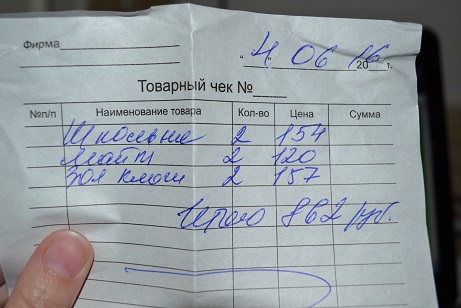 Фирма
"4" 06 2016 г.
Товарный чек №
№п/п Наименование товара Кол-во Цена Сумма
Школьные 2 154
2 120
Зол 2 157
Итого 862 руб.